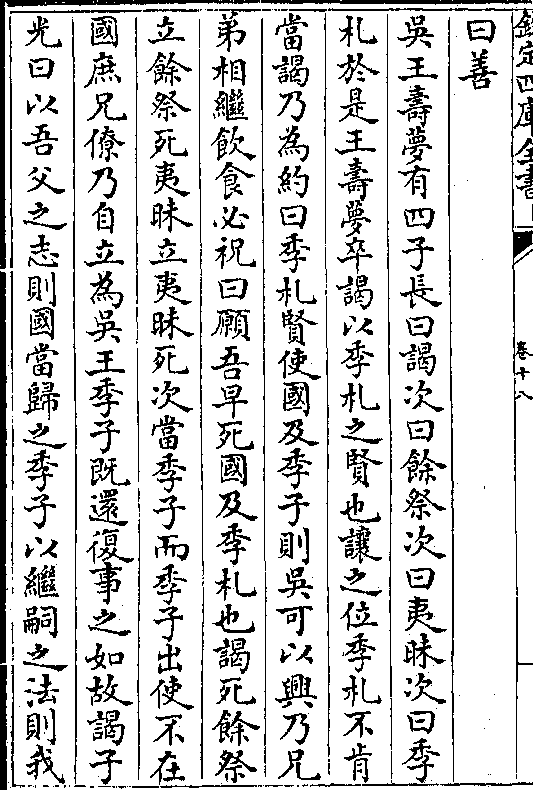 欽定四庫全書
卷十八
曰善
吳王壽夢有四子長曰謁次曰餘祭次曰夷昧次曰季
札於是王壽夢卒謁以季札之賢也讓之位季札不肯
當謁乃為約曰季札賢使國及季子則吳可以興乃兄
弟相繼飲食必祝曰願吾早死國及季札也謁死餘祭
立餘祭死夷昧立夷昧死次當季子而季子出使不在
國庶兄僚乃自立為吳王季子既還復事之如故謁子
光曰以吾父之志則國當歸之季子以繼嗣之法則我